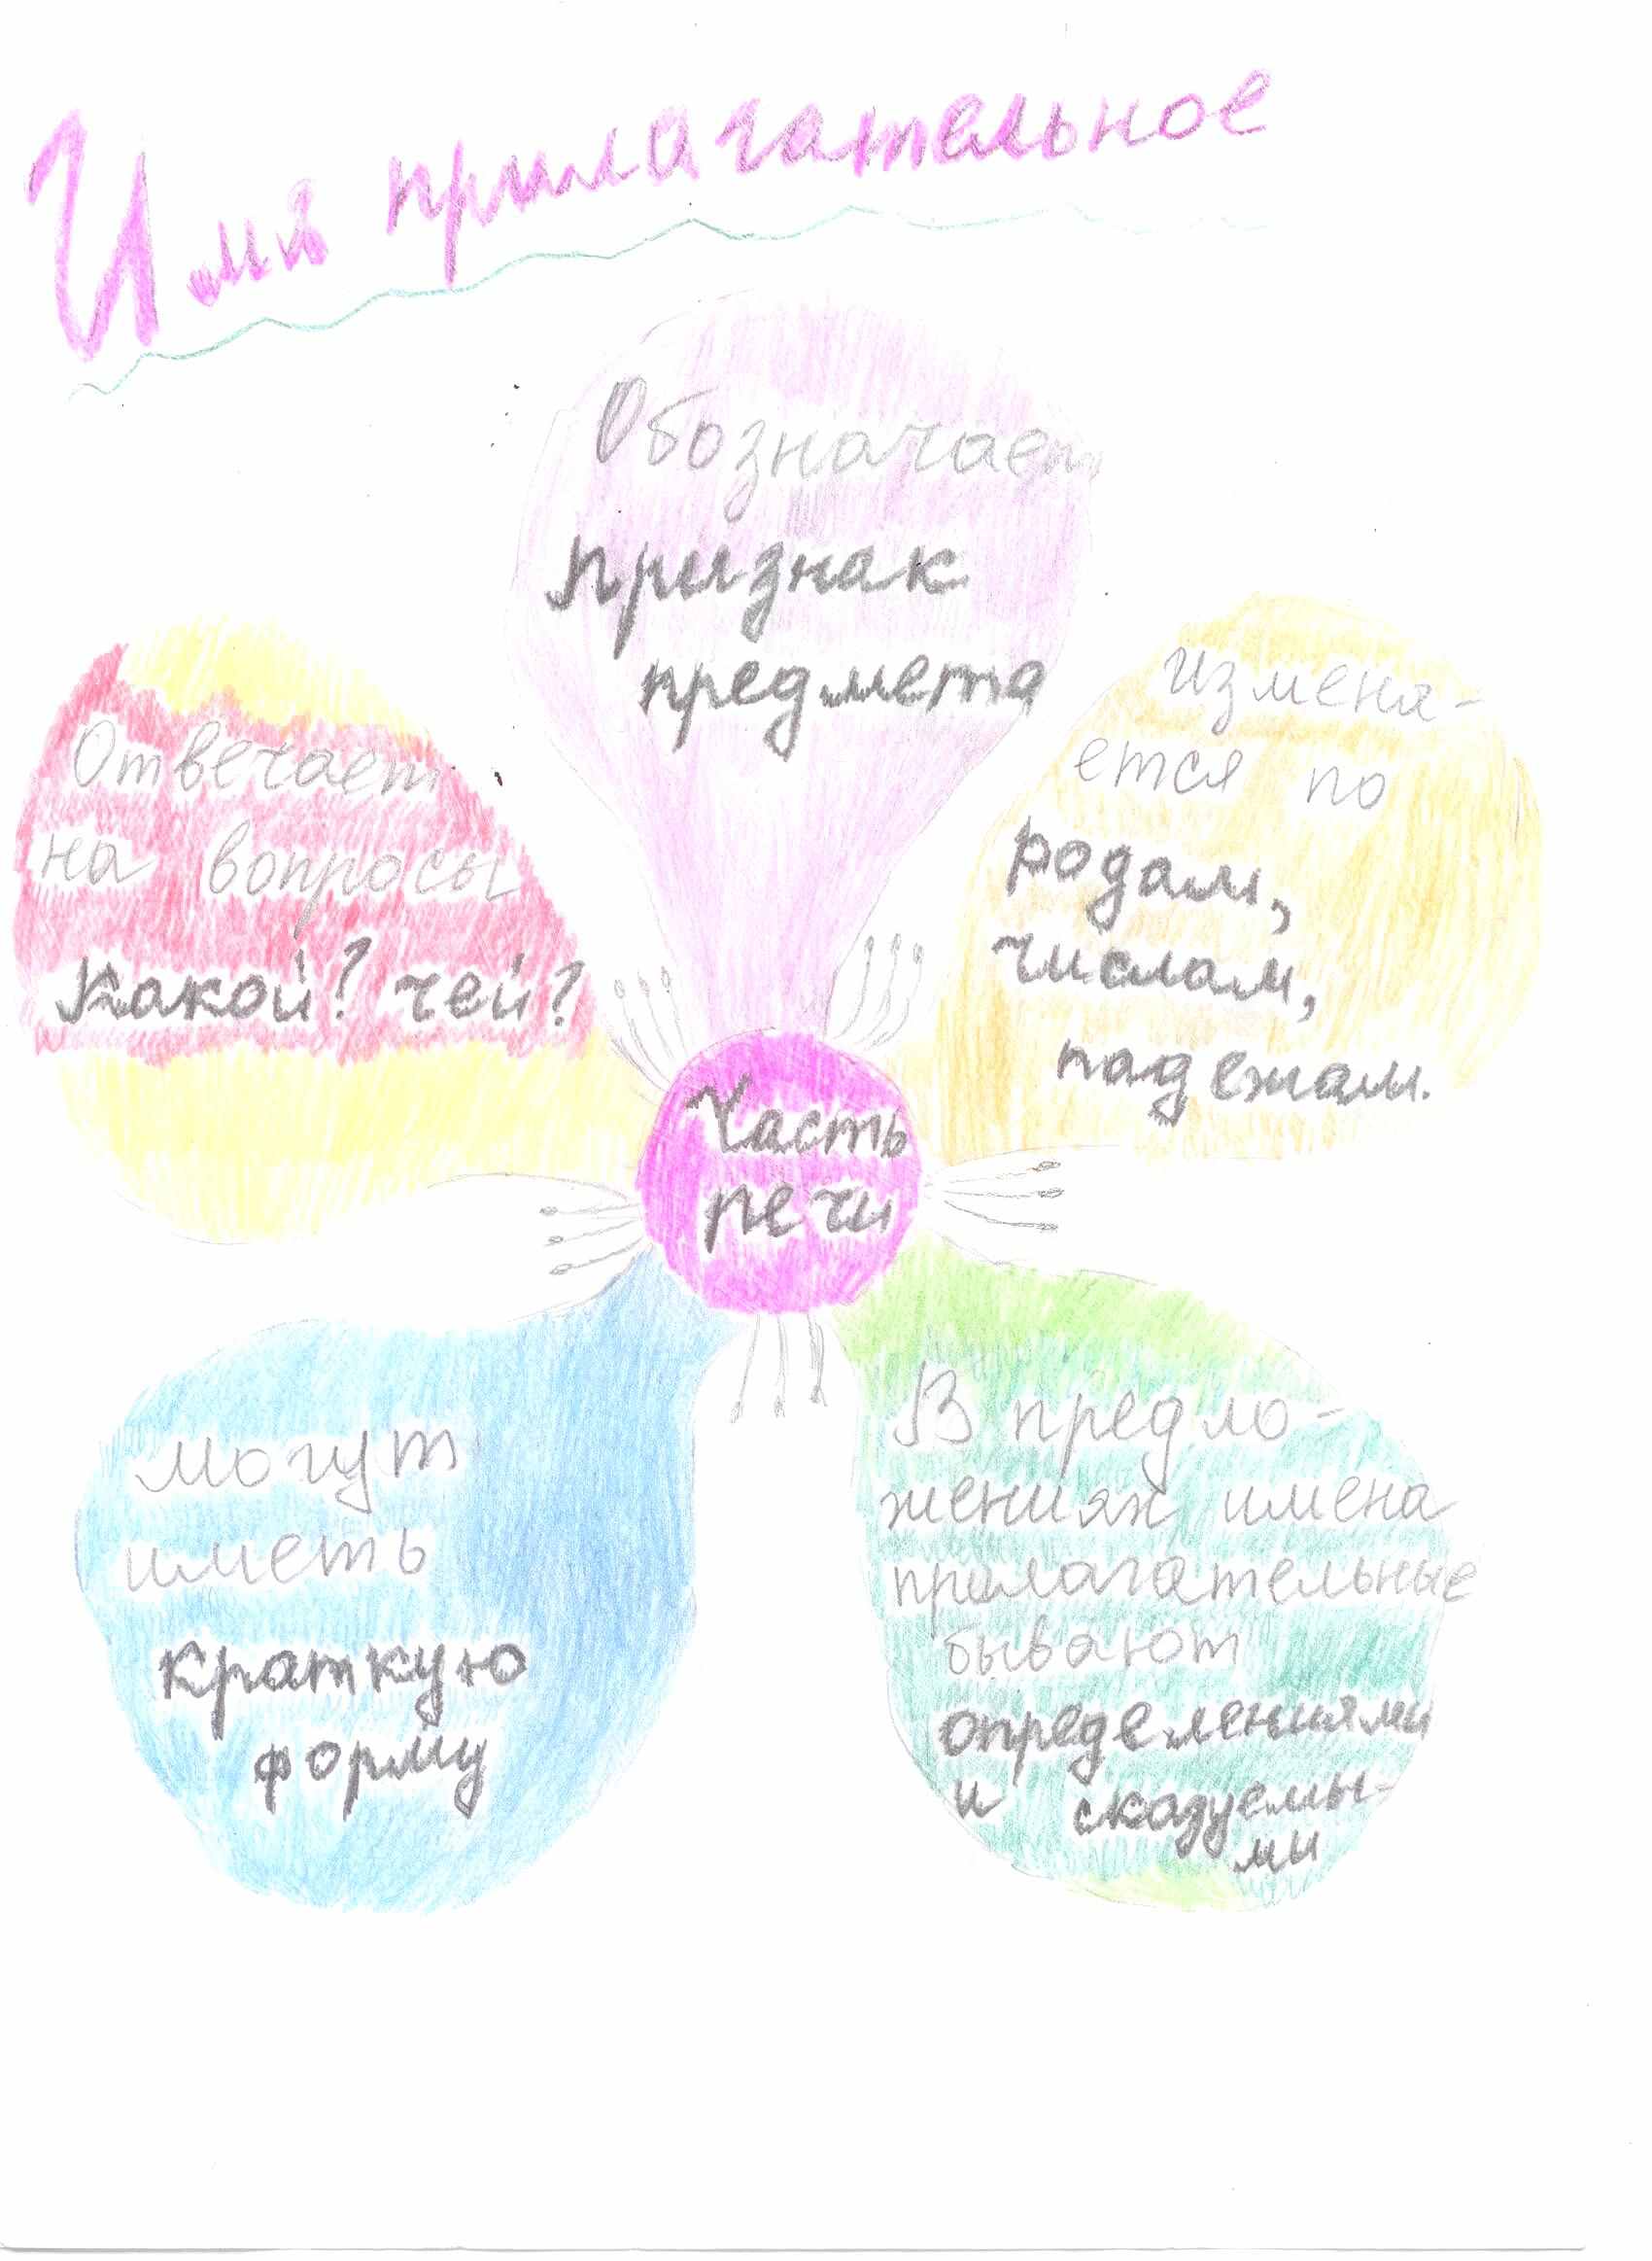 Имя прилагательное
Обозначает
признак
предмета
Отвечает
на вопросы
Какой? чей?
Изменя-
ется по
родам,
числам,
падежам.
Часть
речи
могут
иметь
краткую
форму
В предло-
жениях имена
прилагательные
бывают
определениями
и сказуемы-
ми